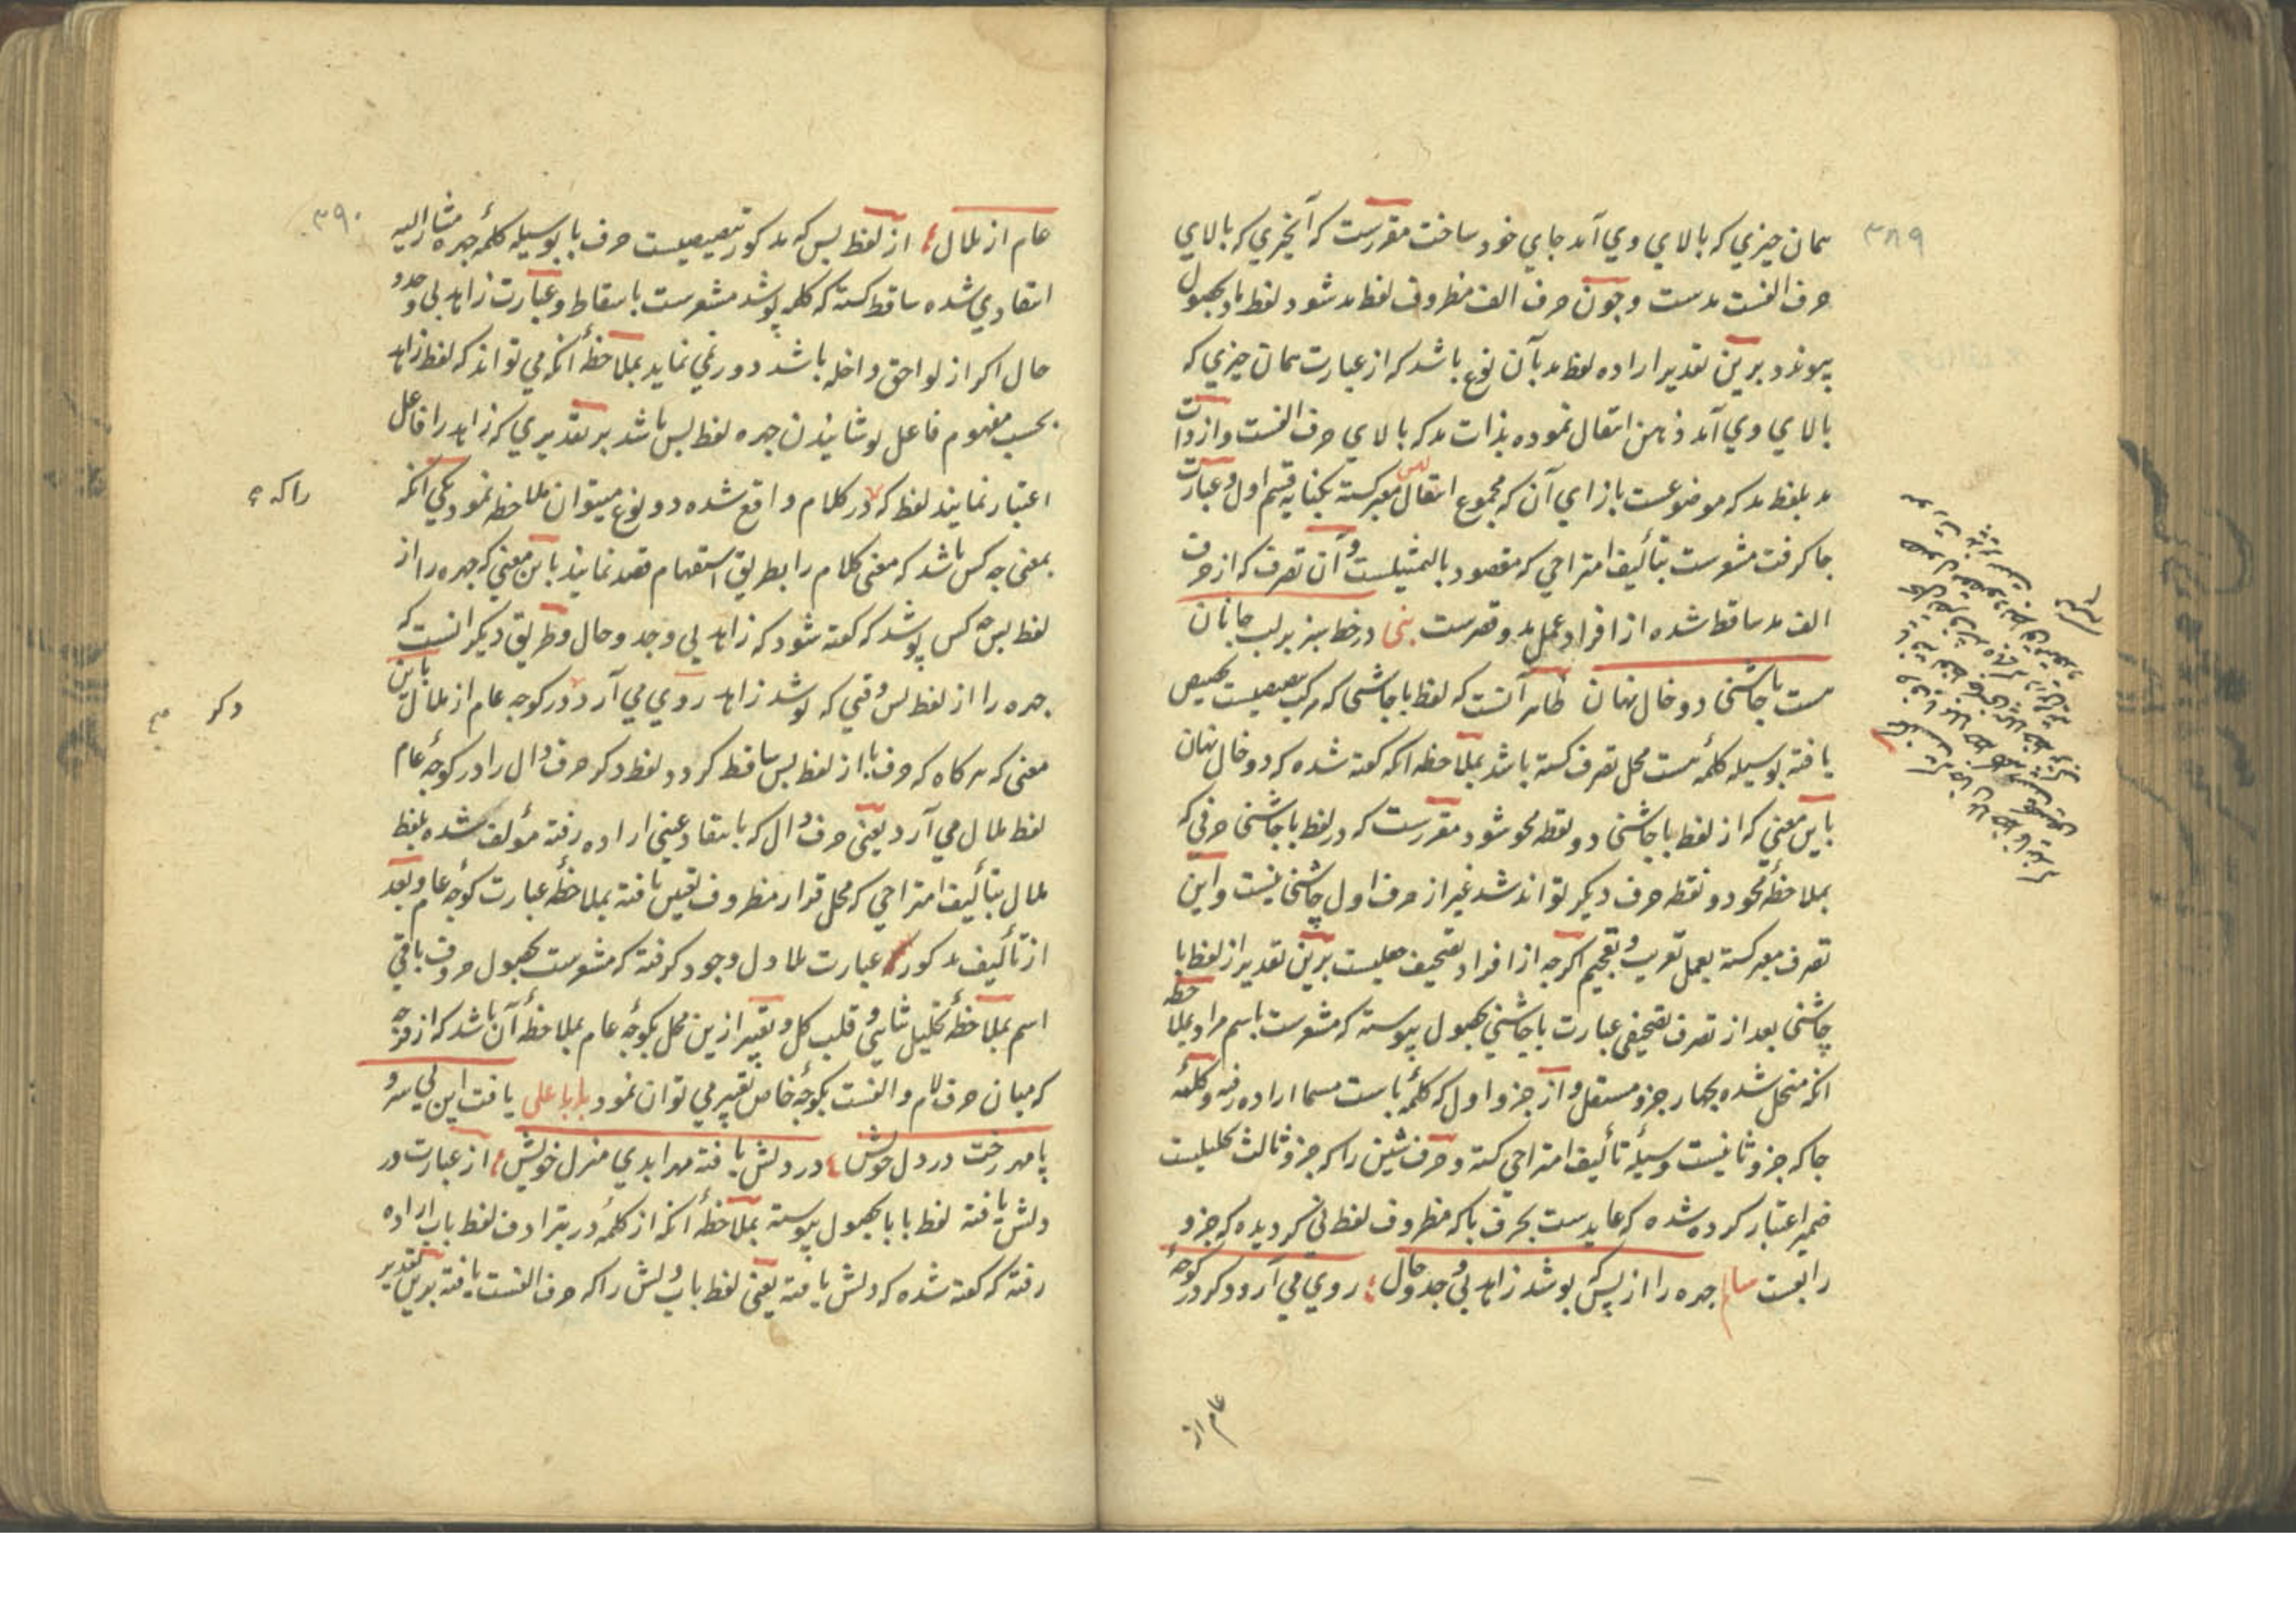 ۳۸۹
همان چیزی که بالای وی آمد جای خود ساخت مقررست که آنچیزی که بالای
حرف الفست مدست و چون حرف الف مظروف لفظ مد شود لفظ باد بحصول
پیوندد و برین تقدیر اراده لفظ مد بآن نوع باشد که از عبارت همان چیزی که
بالای وی آمد ذهن انتقال نموده بذات مد که بالای حرف الفست و از ذات
مد بلفظ مد که موضوعست بازای آن که مجموع انتقال معبر کشته بکنایه قسم اول و عبارت
جا کرفت مشعرست بتألیف امتزاجی که مقصود بالتمثیلست و آن تصرف که از حرف
الف مد ساقط شده از افراد عمل مد و قصرست شی در خط سبز بر لب جانان
هست با چاشنی دو خال نهان ظاهر آنست که لفظ با چاشنی که مرکب بتنصیصیست تخصیص
یافته بوسیله کلمهٔ هست محل تصرف کشته باشد بملاحظه آنکه کفته شده که دو خال نهان
باین معنی که از لفظ با چاشنی دو نقطه محو شود مقررست که در لفظ با چاشنی حرفی که
بملاحظهٔ محو دو نقطه حرف دیکر تواند شد غیر از حرف اول چاشنی نیست و این
تصرف معبر کشته بعمل تعریب و تعجیم اکرچه از افراد تصحیف جعلیست برین تقدیر از لفظ با
چاشنی بعد از تصرف تصحیفی عبارت با جاشنی بحصول پیوسته که مشعرست باسم مراد بملاحظه
آنکه منحل شده بچهار جزو مستقل و از جزو اول که کلمهٔ باست مسما اراده رفته و کلمهٔ
جا که جزو ثانیست وسیلهٔ تألیف امتزاجی کشته و حرف شین را که جزو ثالث تحلیلیست
ضمیر اعتبار کرده شده که عایدست بحرف با که مظروف لفظ نی کردیده که جزو
رابعست سام چهره را از پس که بپوشد زاهد بی وجد و حال روی می آرد و کر در کوچهٔ
عام از
۳۹۰
عام از ظلال از لفظ پس که مذکور تبعیضیست حرف با بوسیله کلمهٔ چهره مشار الیه
انتقادی شده ساقط کشته که کلمه پوشد مشعرست باسقاط و عبارت زاهد بی وجد و
حال اکر از لواحق داخله باشد دور نمی نماید بملاحظهٔ آنکه می تواند که لفظ زاهد
بحسب مفهوم فاعل پوشانیدن چهره لفظ پس باشد بر تقدیری که زاهد را فاعل
اعتبار نمایند لفظ که در کلام واقع شده دو نوع میتوان ملاحظه نمود یکی آنکه
راکه
بمعنی چه کس باشد که معنی کلام را بطریق استفهام قصد نمایند باین معنی که چهره را از
لفظ پس چه کس پوشد که کفته شود که زاهد بی وجد و حال و طریق دیکر آنست که
چهره را از لفظ پس وقتی که پوشد زاهد روی می آرد در کوچه عام از ظلال باین
دکر
معنی که هر کاه که حرف با از لفظ پس ساقط کرد و لفظ دکر حرف دال را در کوچهٔ عام
لفظ ظلال می آرد یعنی حرف دال که بانتقاد عینی اراده رفته مؤلف شده بلفظ
ظلال بتألیف امتزاجی که محل قرار مظروف تعین یافته بملاحظهٔ عبارت کوچهٔ عام و بعد
از تألیف مذکور عبارت ظلا دل وجود کرفته که مشعرست بحصول حروف باقی
اسم بملاحظهٔ تحلیل ثنایی و قلب کل و تعبیر ازین محل بکوچهٔ عام بملاحظهٔ آن باشد که از فرجه
که میان حرف لام و الفست بکوچهٔ خاص تعبیر می توان نمود بابا علی یافت این بی سر و
پا مهر رخت در دل خویش در دلش یافته مهر ابدی منزل خویش از عبارت در
دلش یافته لفظ بابا بحصول پیوسته بملاحظهٔ آنکه از کلمهٔ در بترادف لفظ باب اراده
رفته که کفته شده که دلش یافته یعنی لفظ باب دلش را که حرف الفست یافته برین تقدیر